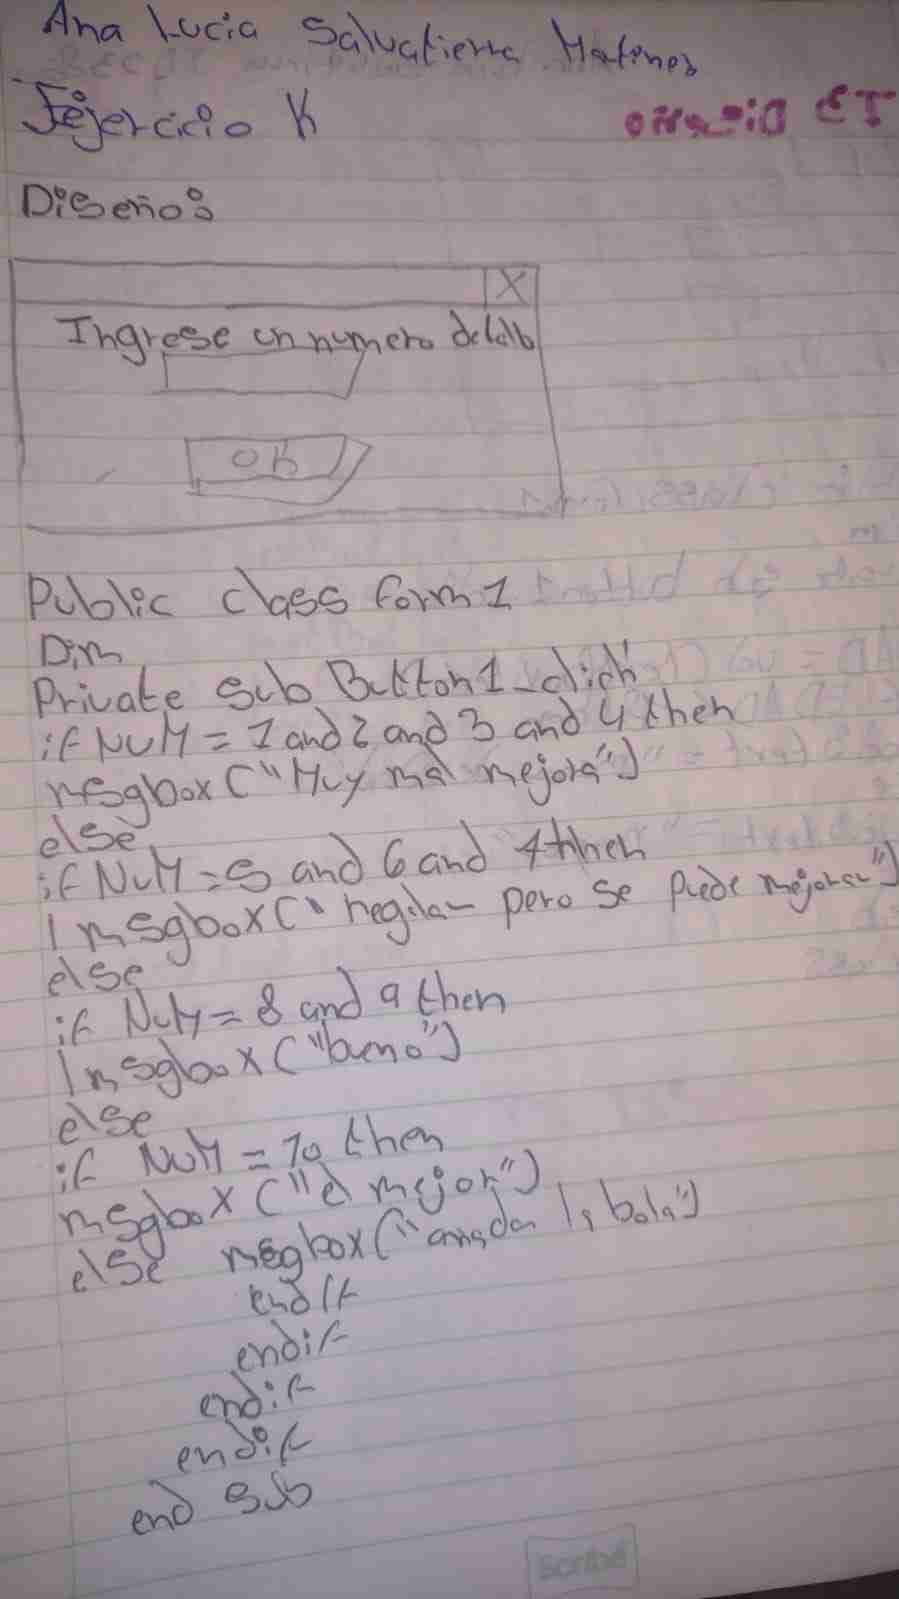 Ana Lucia Salvatierra
Ejercicio K
Diseño:
X
Ingrese un numero
OK
Public class form 1
Dim
Private Sub Button1_click
if NUM = 1 and 2 and 3 and 4 then
msgbox ("Muy mal mejora")
else
if NUM = 5 and 6 and 7 then
msgbox (" regular pero se puede mejorar")
else
if NUM = 8 and 9 then
msgbox ("bueno")
else
if NUM = 10 then
msgbox ("el mejor")
else msgbox (" la bola")
end if
endif
endif
endif
end sub
Scribe